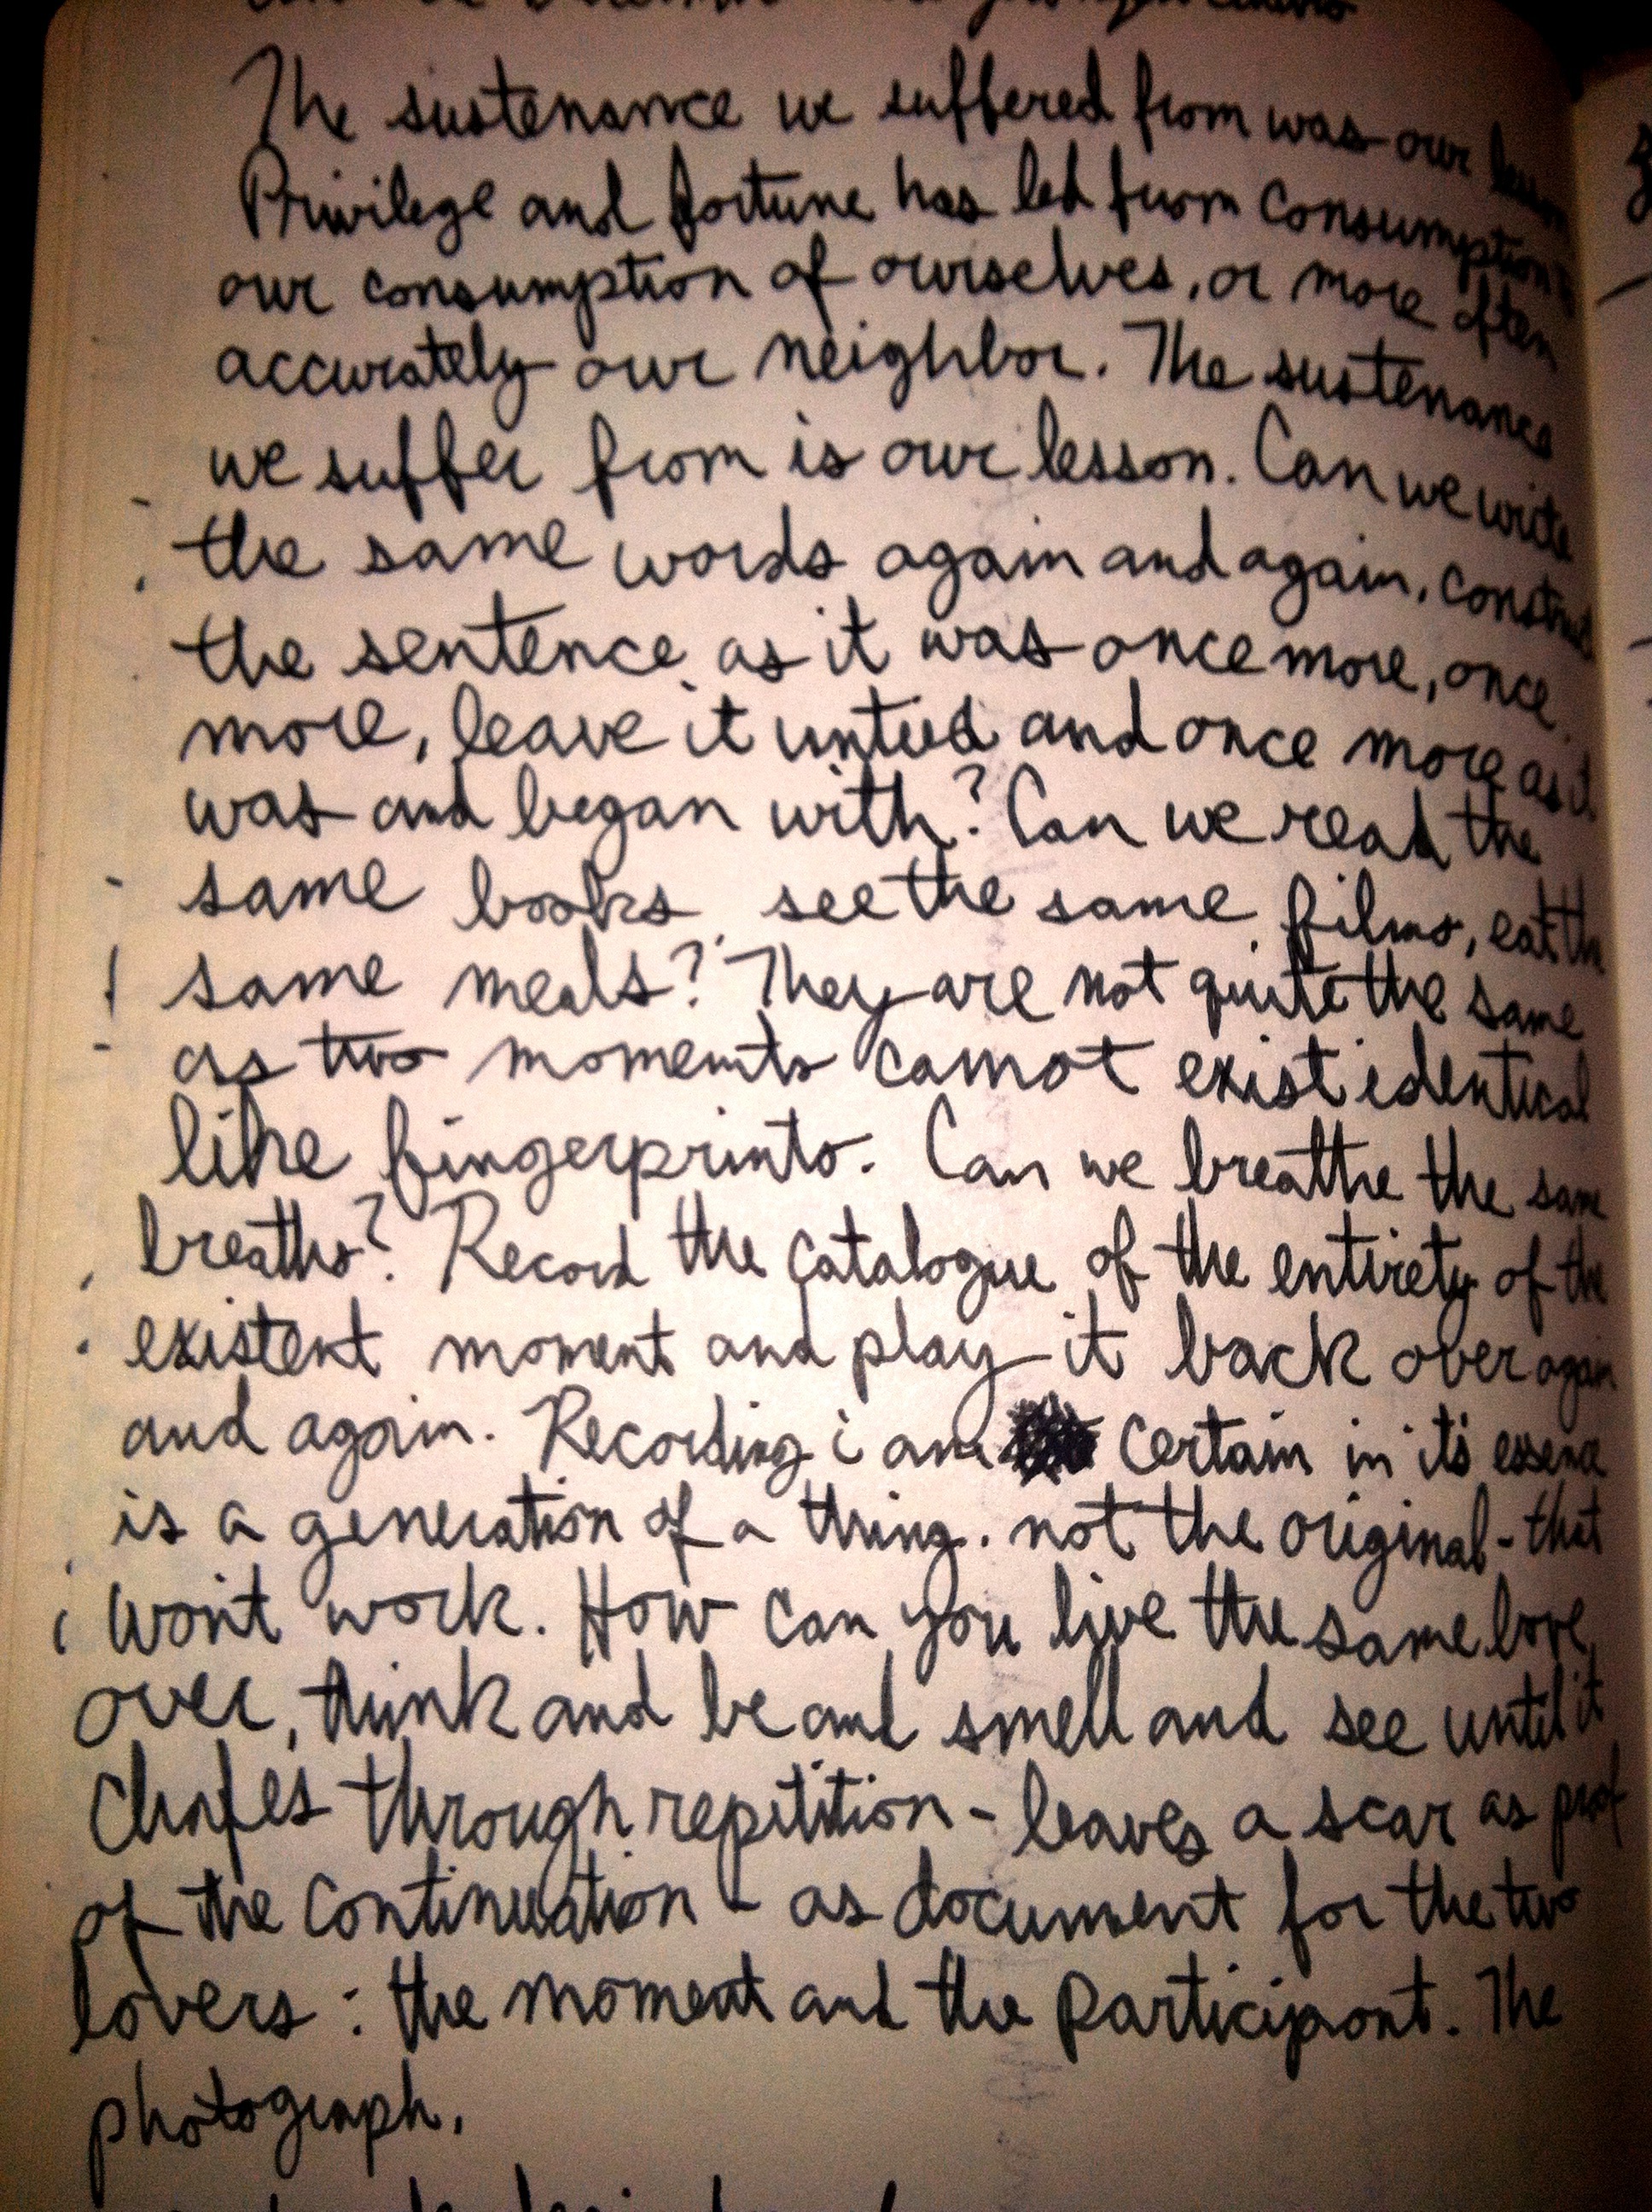 The sustenance we suffered from was our lesson
Privilege and fortune has led from consumption
our consumption of ourselves, or more often
accurately our neighbor. The sustenance
we suffer from is our lesson. Can we write
the same words again and again, construct
the sentence as it was once more, once
more, leave it untied and once more as it
was and began with? Can we read the
same books, see the same films, eat the
same meals? They are not quite the same
as two moments cannot exist identical
like fingerprints. Can we breathe the same
breaths? Record the catalogue of the entirety of the
existent moment and play it back over again
and again. Recording i am certain in it's essence
is a generation of a thing. not the original - that
won't work. How can you live the same love
over, think and be and smell and see until it
chafes through repitition - leaves a scar as proof
of the continuation - as document for the two
lovers : the moment and the participant. The
photograph.